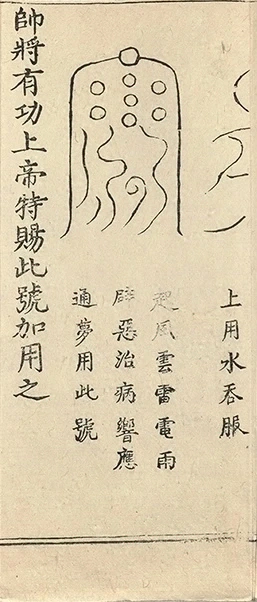 上用水吞服
起風雲雷電雨
辟惡治病響應
通夢用此號
帥將有功上帝特賜此號加用之